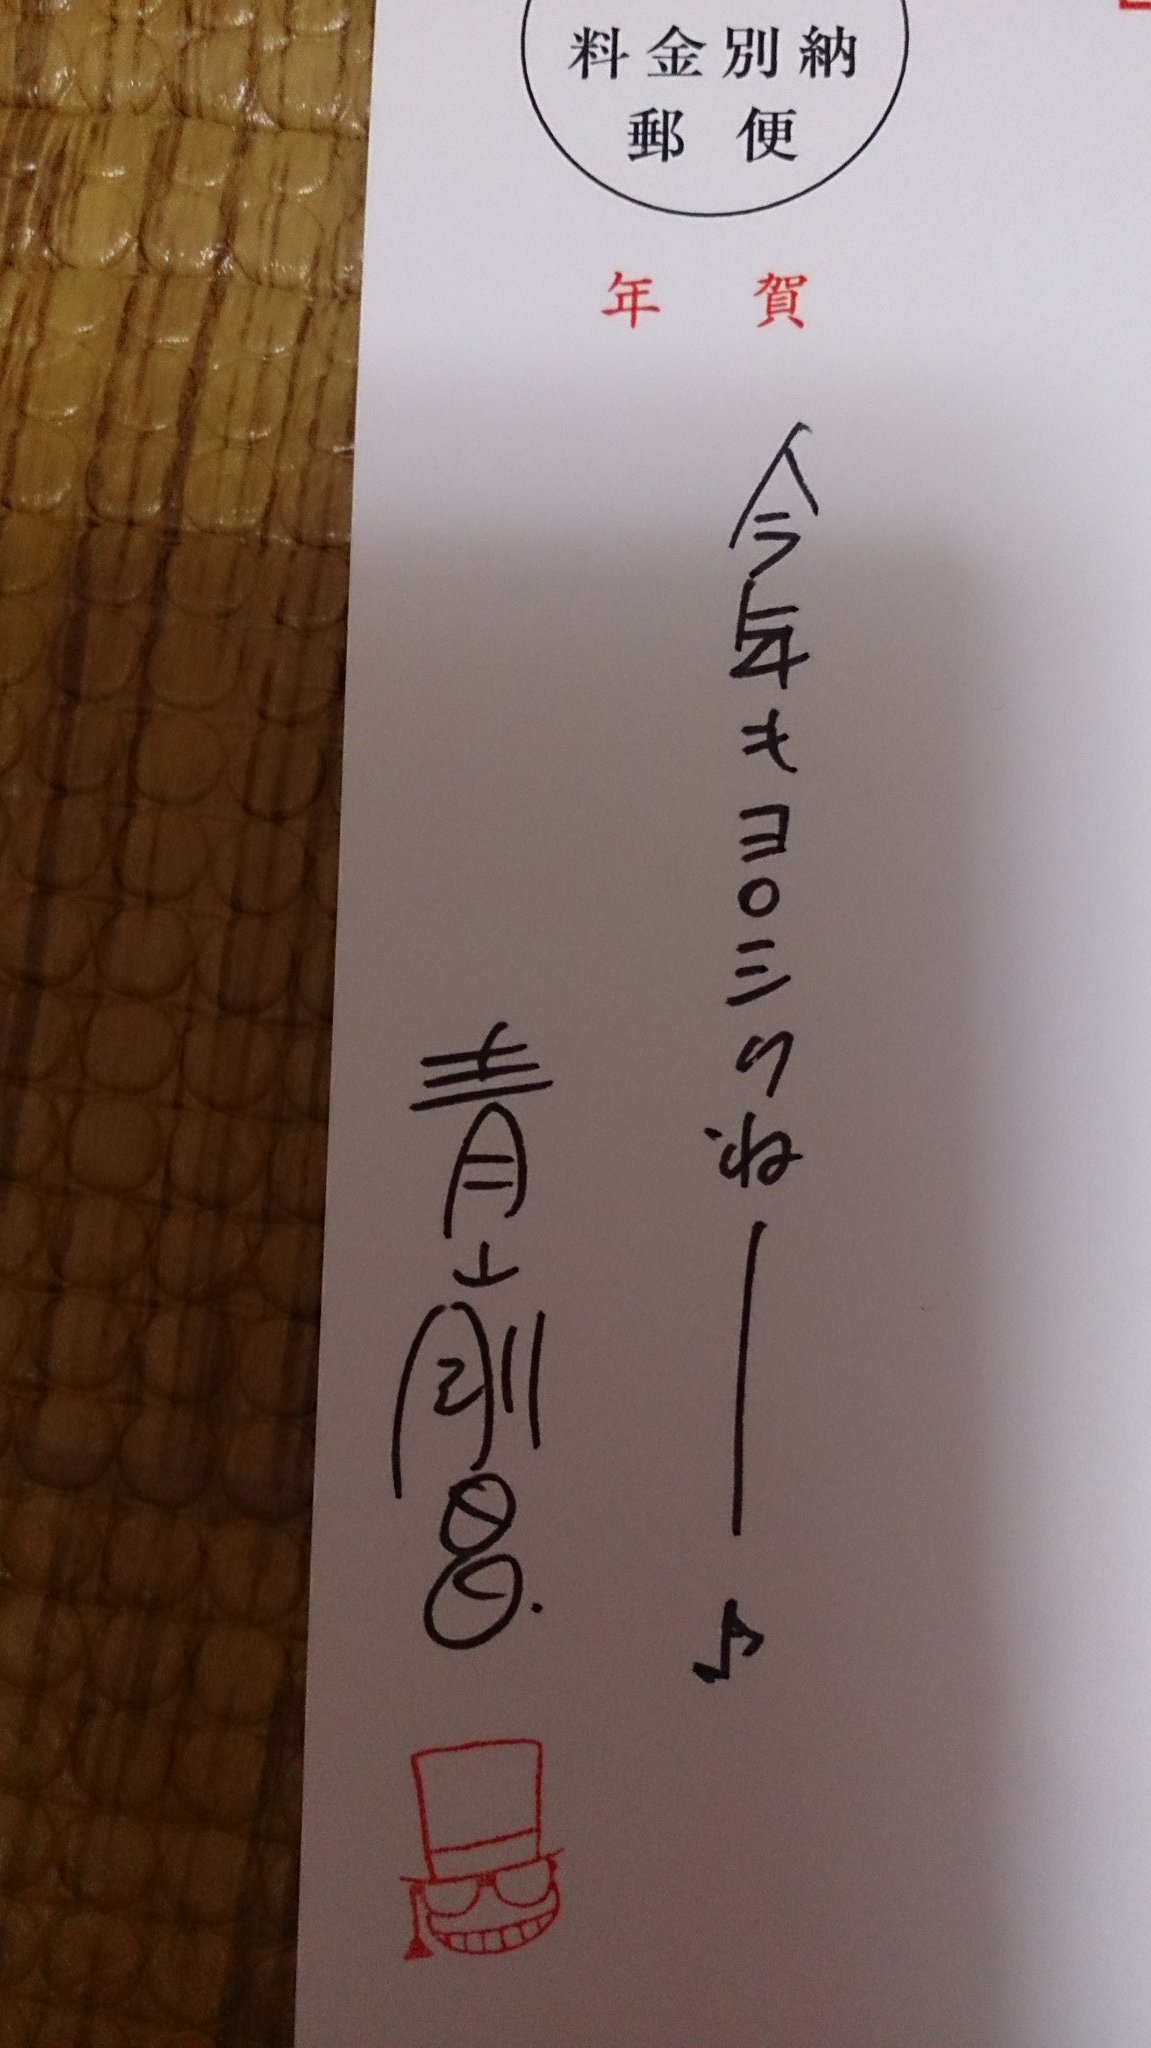 料金別納
郵便
年賀
今年もヨロシクねー♪
青山剛昌.